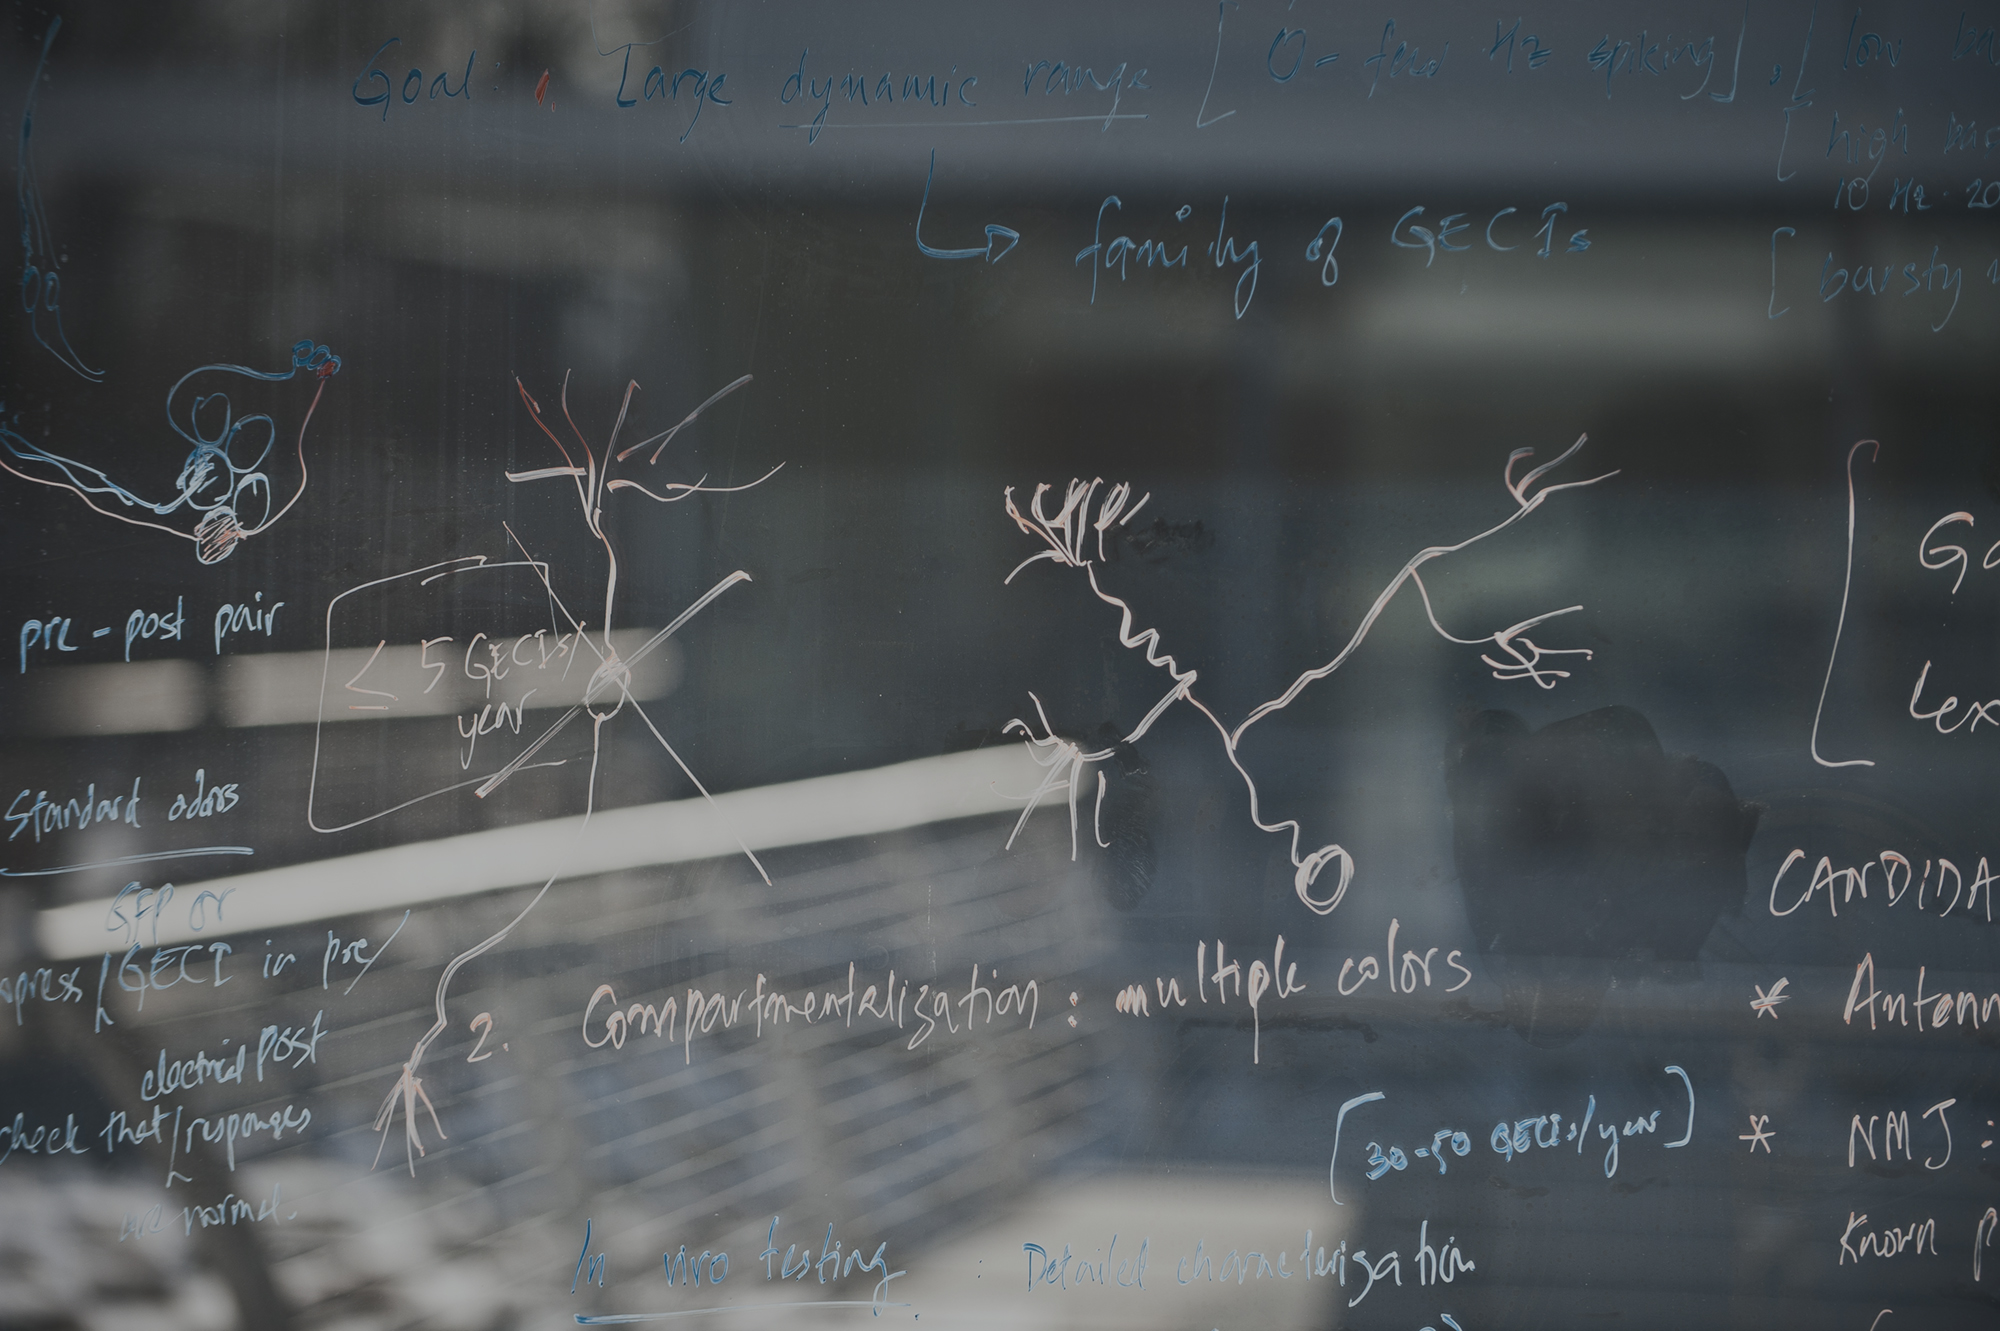 Goal: 1. Large dynamic range [0- few Hz spiking], [low
[high
10 Hz-20
family of GECIs
[bursty
pre-post pair
≤ 5 GECIs/
year
Standard odors
GFP or
GECI in pre/
post
electrical
check that responses
are normal.
2. Compartmentalization: multiple colors
[30-50 GECIs/year]
In vivo testing : Detailed characterization
Lex
CANDIDA
* Antenn
* NMJ:
Known p